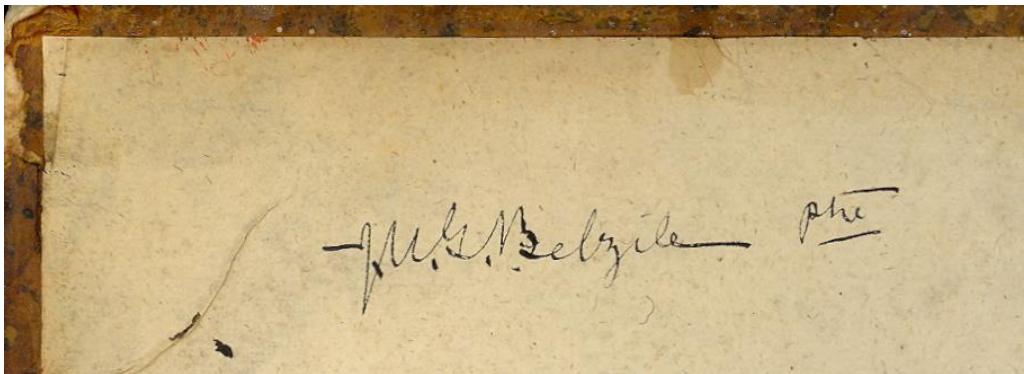 J.M.G. Belzile ptre